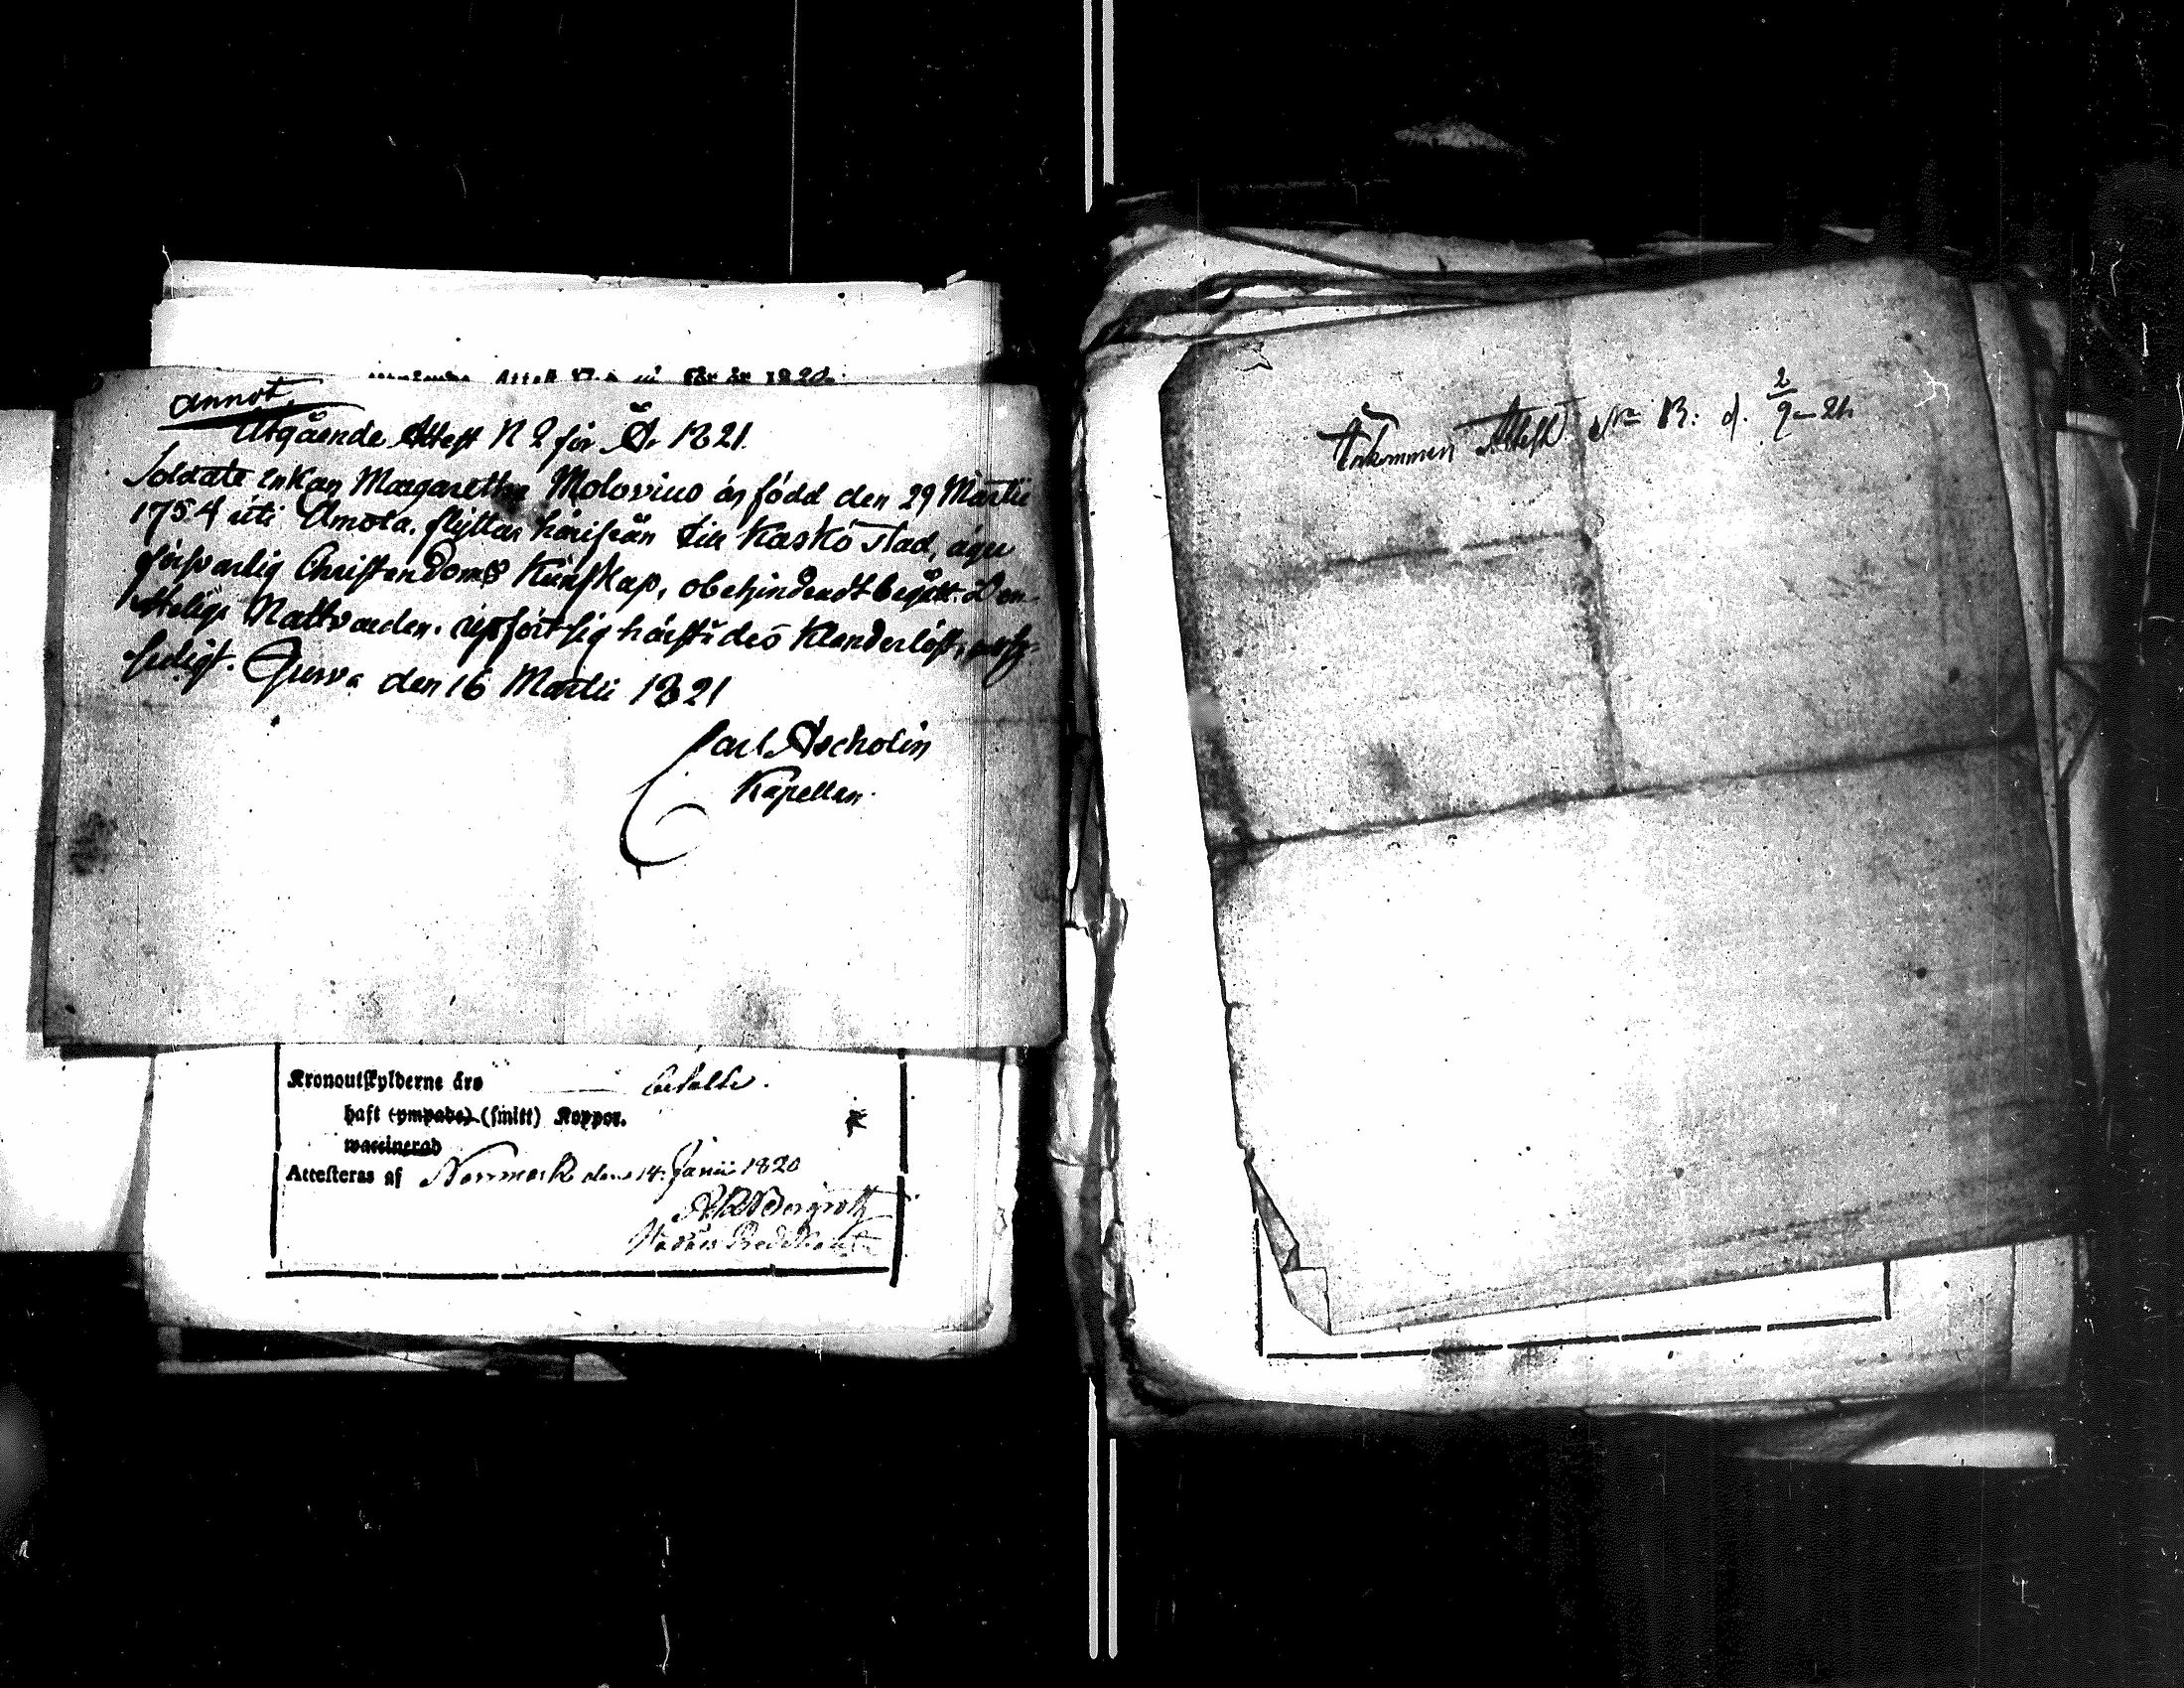 annot.
Utgående Attest N 2 för År 1821.
Soldats Enkan Margaretha Molovius är född den 29 Martii
1754 uti Umola. flyttar härifrån till Kaskö stad, äger
försvarlig Christendoms Kunskap, obehindradt begått den
Heliga Nattvarden. uppfört sig härstädes Klanderlöst,
fredigt. Gurva den 16 Martii 1821
Carl Ascholin
Kapellan.
Attest för år 1820.
Kronoutskylderne äro betalte.
haft (ympade) (smitt) Koppor.
waccinerad
Attesteras af Norrmark den 14 Junii 1820
Inkommen Attest No 13: d. 2/9 - 21